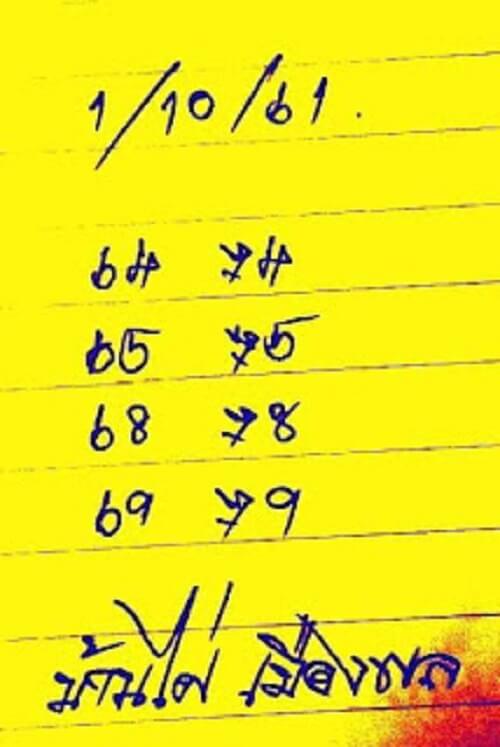 1/10/61.
64 74
65 75
68 78
69 79
บ้านไผ่ เมืองพล